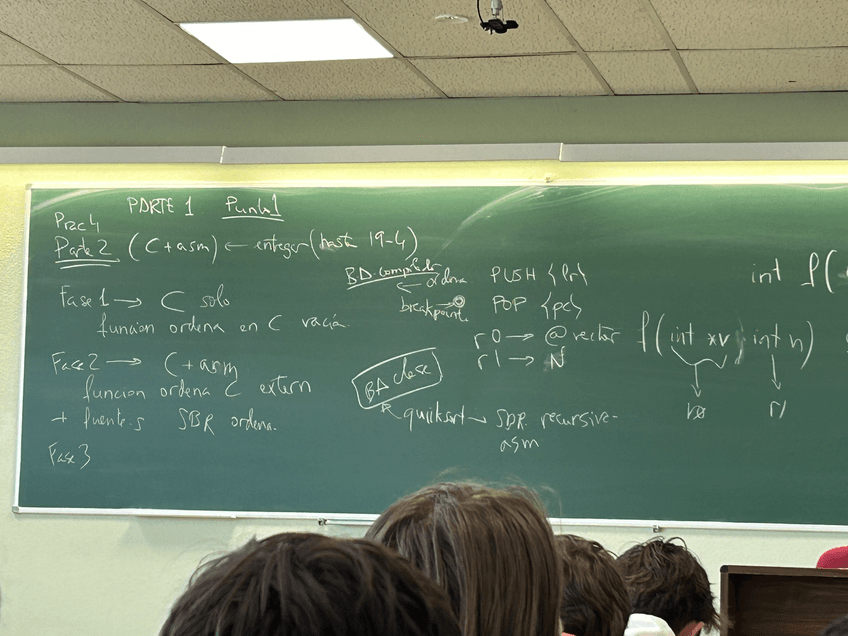 PARTE 1 Punto 1
Prac 4
Parte 2 (C + asm) ← entregar (hasta 19-4)
Fase 1 → C solo
funcion ordena en C vacía.
Fase 2 → C + asm
funcion ordena C extern
+ fuente.s SBR ordena.
Fase 3
BD. completo
← ordena
breakpoint. →
PUSH {lr}
POP {pc}
r0 → @ vector
r1 → N
BD clase
quicksort → SBR. recursive-
asm
int f(
f(int *v, int n)
r0 r1